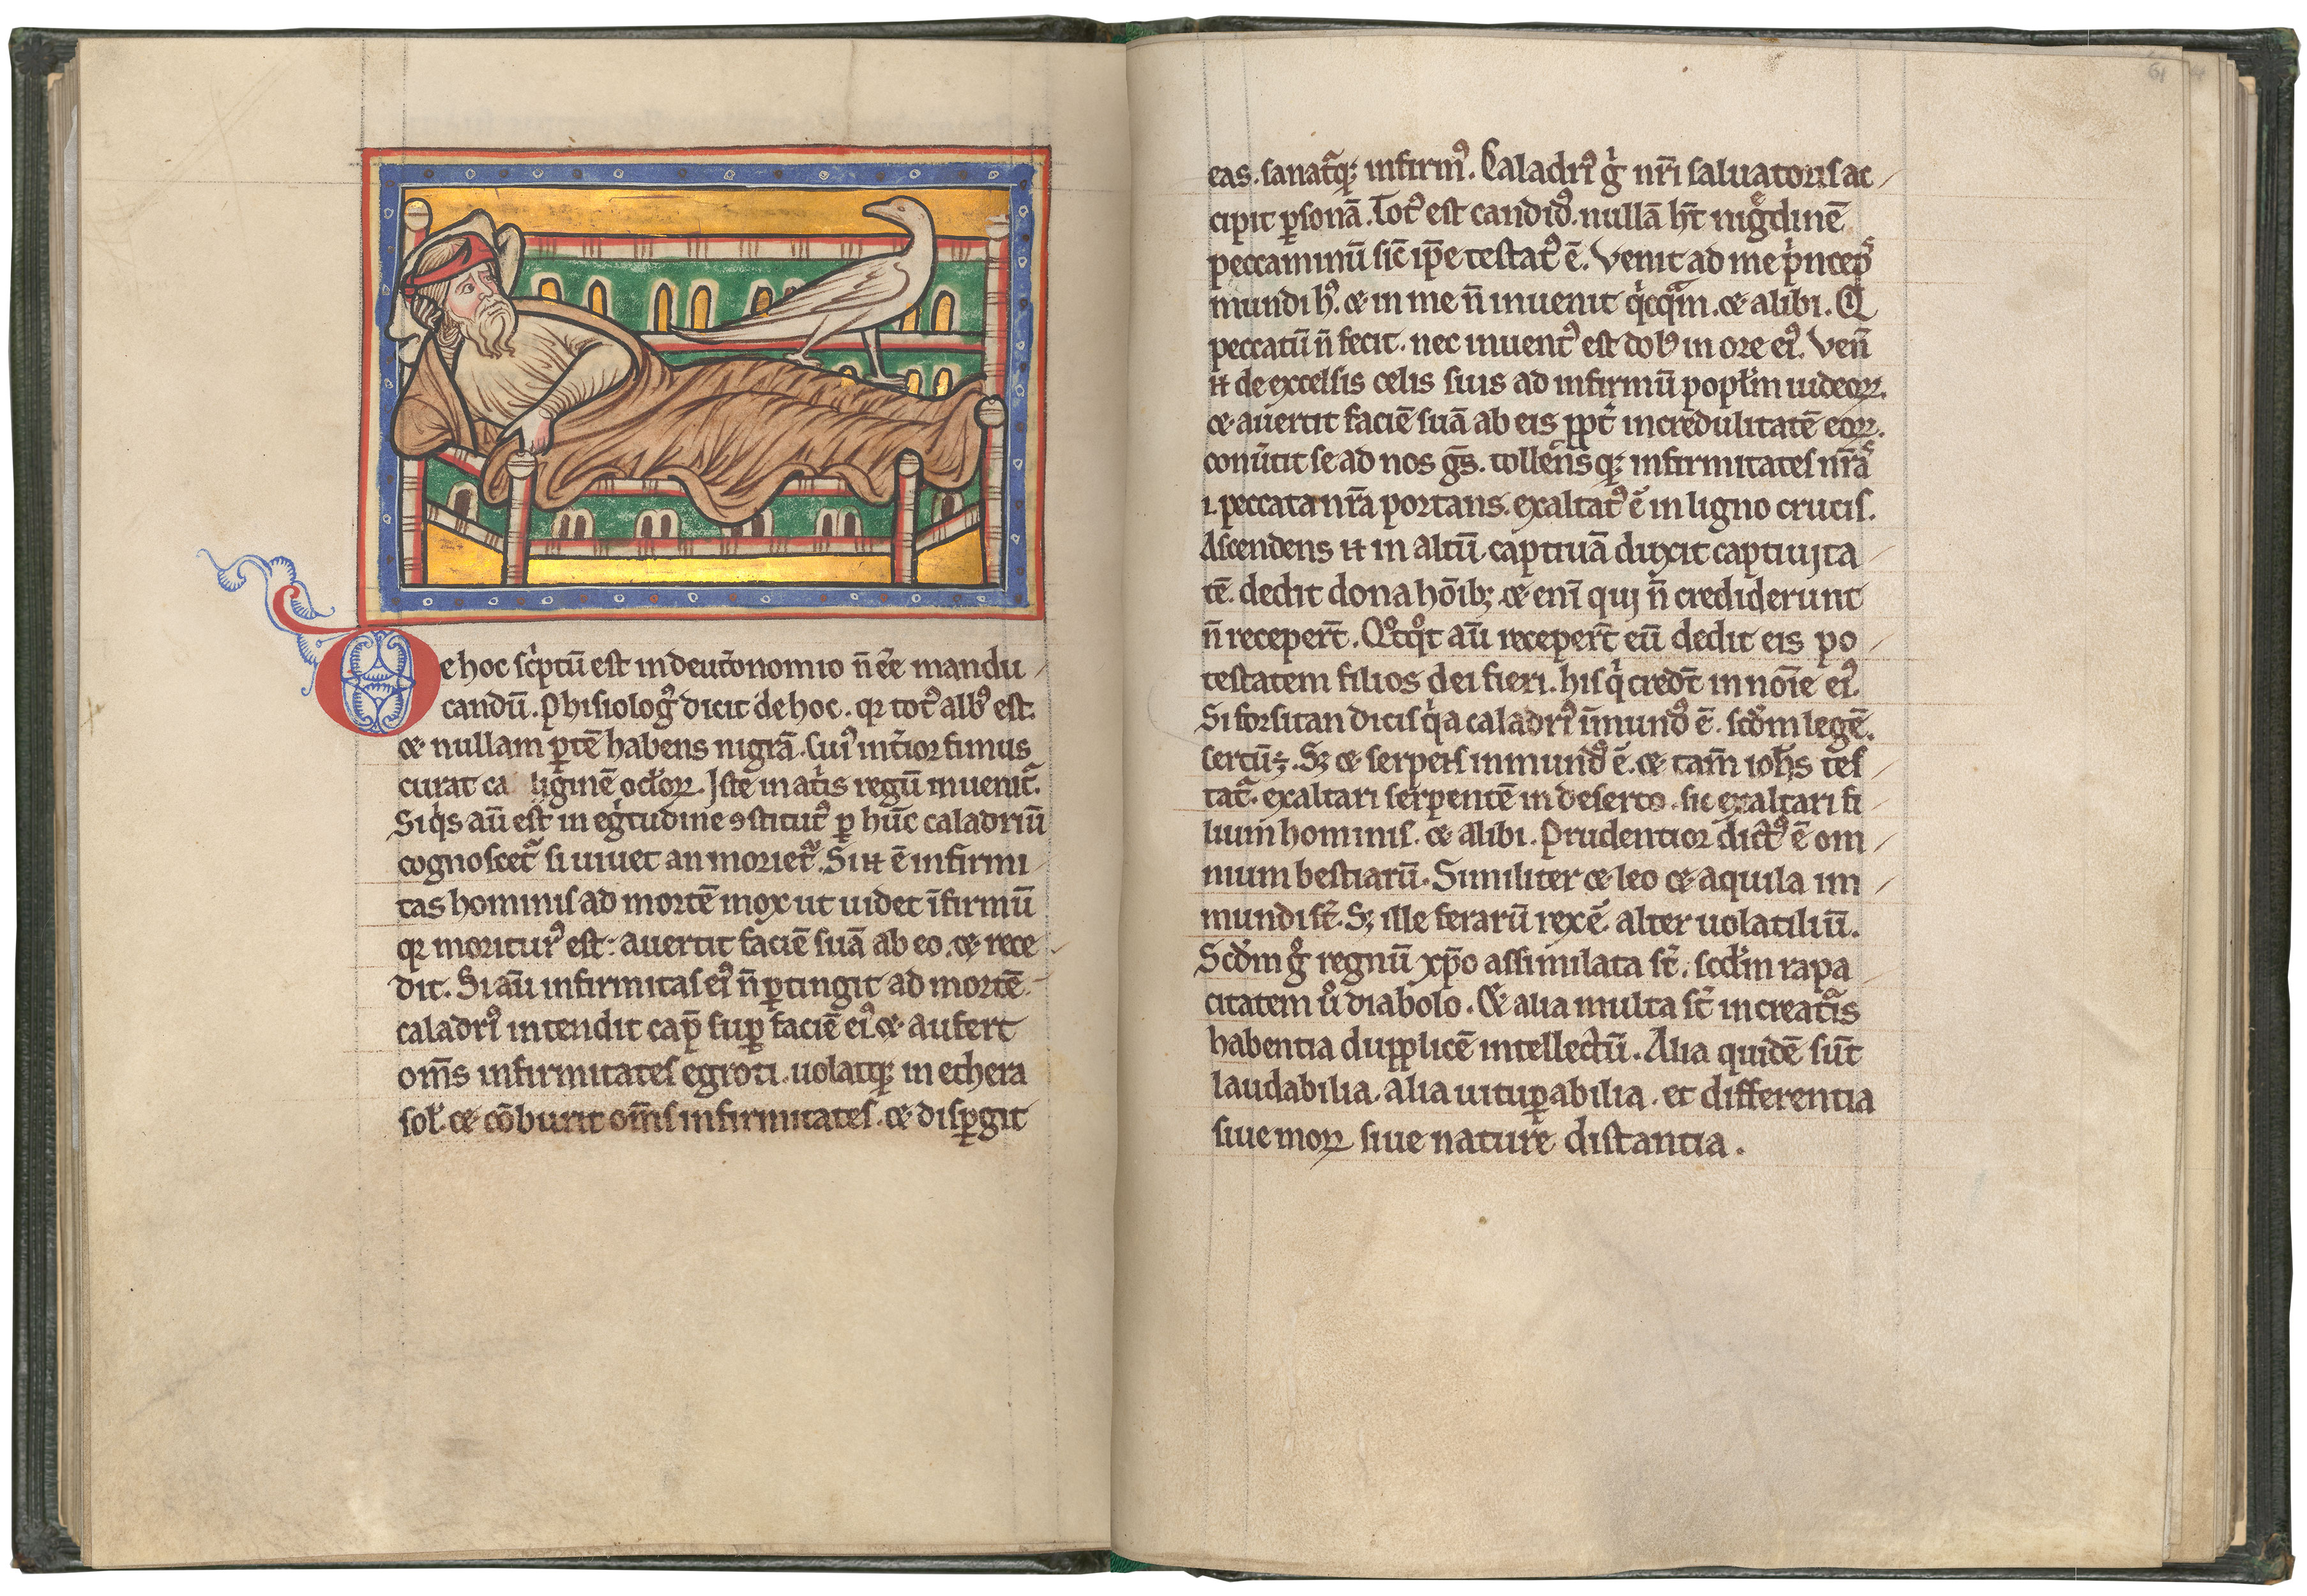 De hoc sc̓ptū est in deut̓onomio n̄ ēe mandu
candū. Phisiologꝰ dicit de hoc. qꝛ totꝰ albꝰ est.
⁊ nullam ꝑtē habens nigrā. cuiꝰ int̓ior fimus
curat ca liginē oclo̓ꝝ. Iste in at̓is regū inuenit᷑.
Siq̓s aū est in eg̓tudine ꝯstitutꝰ ꝑ hūc caladriū
cognoscet᷑ si uiuet an moriet᷑. Si ⁊ ē infirmi
tas hominis ad mortē mox ut uidet īfirmū
qꝛ moriturꝰ est: auertit faciē suā ab eo. ⁊ rece
dit. Si aū infirmitas eiꝰ n̄ ꝑtingit ad mortē
caladriꝰ intendit cap̄ suꝑ faciē eiꝰ ⁊ aufert
om̄s infirmitates egroti. uolatqꝫ in ethera
sol̓. ⁊ cōburit om̄s infirmitates. ⁊ disꝑgit
61
eas. sanat᷑qꝫ infirmꝰ. Caladriꝰ g̓ nr̄i saluatoris ac
cipit ꝑsonā. Totꝰ est candidꝰ. nullā ht̄ nigᵉdinē
peccaminū sic̄ ip̄e testatꝰ ē. Venit ad me p̓ncepˢ
mundi hꝰ. ⁊ in me n̄ inuenit q̓cqᵃm. ⁊ alibi. Q
peccatū n̄ fecit. nec inuentꝰ est dolꝰ in ore eiꝰ. Ven̄
⁊ de excelsis celis suis ad infirmū popl̓m iudeoꝝ.
⁊ auertit faciē suā ab eis ꝓpt̓ incredulitatē eoꝝ.
conu̓tit se ad nos ḡs. tollensqꝫ infirmitates nr̄aˢ
⁊ peccata nr̄a portans. exaltatꝰ ē in ligno crucis.
Ascendens ⁊ in altū captiuā duxit captiuita
tē. dedit dona hōibꝫ. ⁊ enī qui n̄ crediderunt
n̄ recepert̄. Qᵒtqᵒt aū recepert̄ eū dedit eis po
testatem filios dei fieri. his q̓ credt̄ in nōie eiꝰ.
Si forsitan dicis q̓a caladriꝰ īmundꝰ ē. scd̓m legē.
sertū÷. Sꝫ ⁊ serpens inmundꝰ ē. ⁊ tam̄ ioh̄s tes
tat᷑. exaltari serpentē in deserto. sic exaltari fi
lium hominis. ⁊ alibi. Prudentior dictꝰ ē om
nium bestiarū. Similiter ⁊ leo ⁊ aquila im
mundi st̄. Sꝫ ille ferarū rex ē. alter uolatiliū.
Scd̓m gᵒ regnū xp̄o assimilata st̄. scd̓m rapa
citatem uᵒ diabolo. ⁊ alia multa st̄ in creat᷑is
habentia dupplicē intellectū. Alia quidē sūt
laudabilia. alia uituꝑabilia. et differentia
siue moꝝ siue nature distantia.